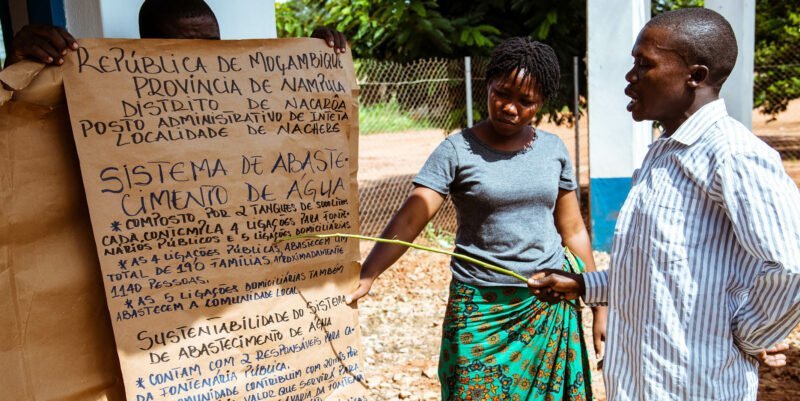 REPÚBLICA DE MOÇAMBIQUE
PROVÍNCIA DE NAMPULA
DISTRITO DE NACARÔA
POSTO ADMINISTRATIVO DE INTETA
LOCALIDADE DE NACHERE
SISTEMA DE ABASTE-
CIMENTO DE ÁGUA
* COMPOSTO, POR 2 TANQUES DE 5000 LITROS
CADA CONTEMPLA 4 LIGAÇÕES PARA FONTENÁ-
RIOS PÚBLICOS E 5 LIGAÇÕES DOMICILIÁRIAS
* AS 4 LIGAÇÕES PÚBLICAS, ABASTECEM UM
TOTAL DE 190 FAMÍLIAS, APROXIMADAMENTE
1140 PESSOAS.
* AS 5 LIGAÇÕES DOMICILIÁRIAS TAMBÉM
ABASTECEM A COMUNIDADE LOCAL.
SUSTENTABILIDADE DO SISTEMA
DE ABASTECIMENTO DE ÁGUA
* CONTAM COM 2 RESPONSÁVEIS PARA CA-
DA FONTENÁRIA PÚBLICA.
* COMUNIDADE CONTRIBUEM COM 20MTS POR
VALOR QUE SERVIRÁ PARA
AVARIA DA FONTENÁR